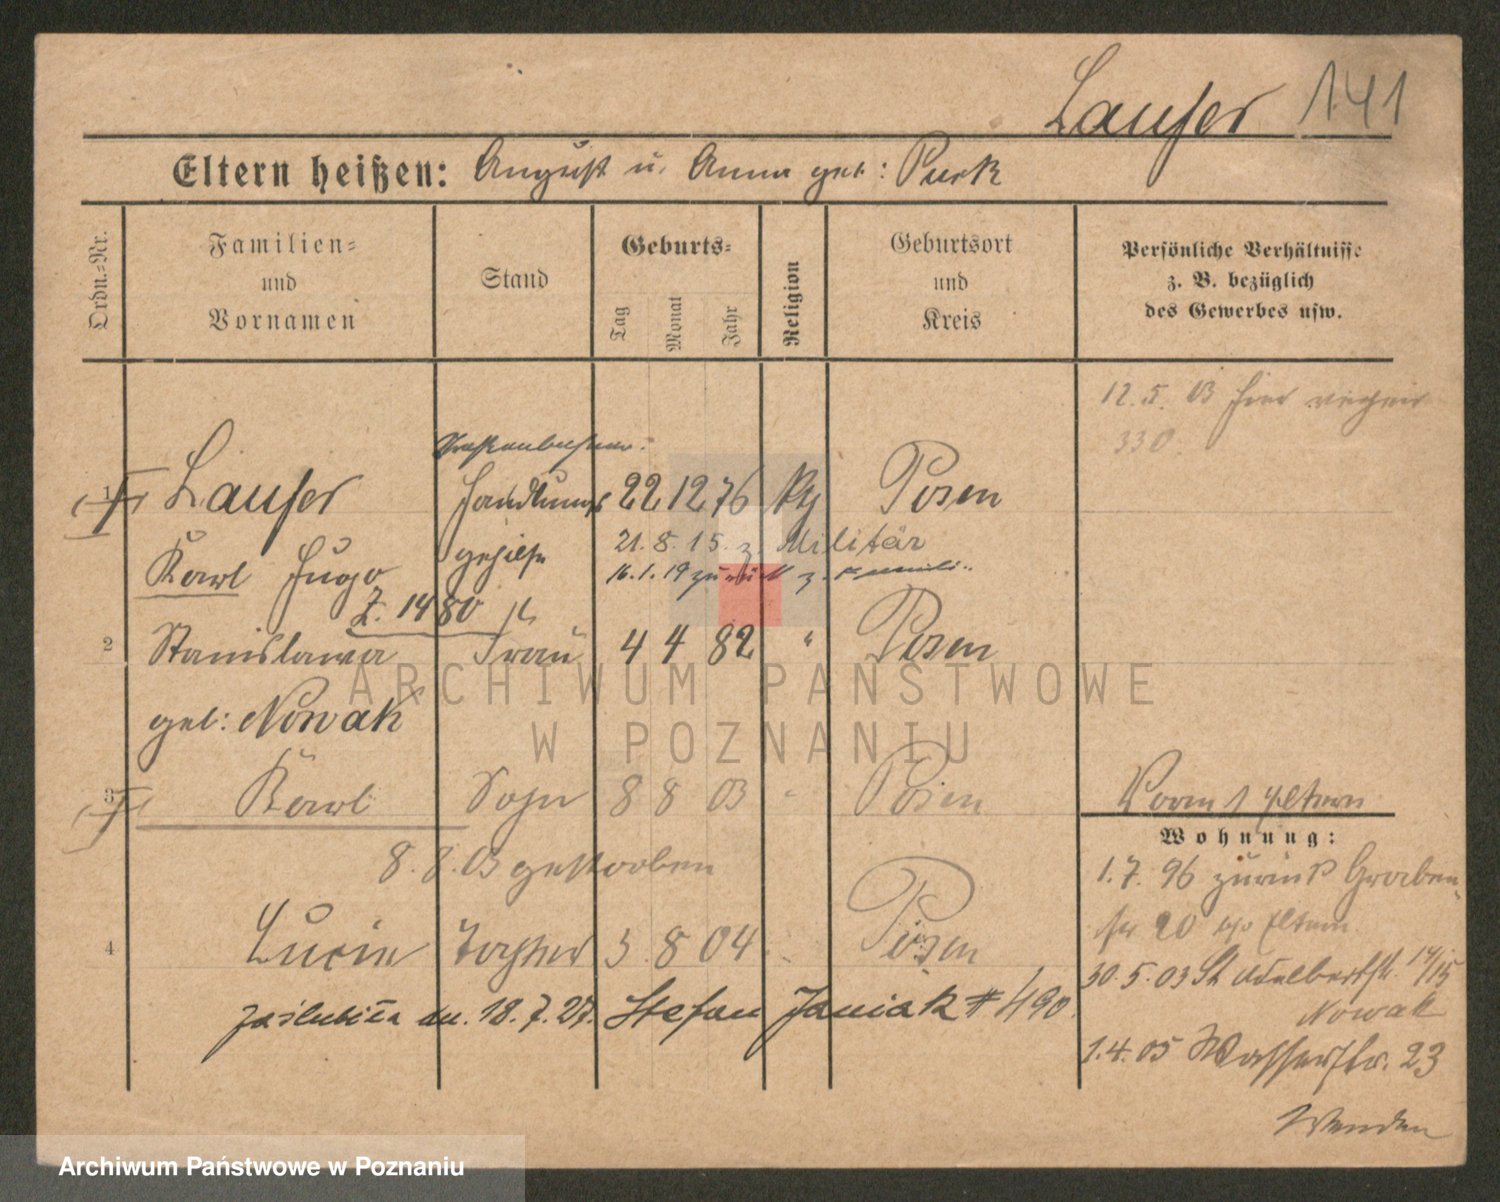 Laufer 141
Eltern heißen: August u. Anna geb: Purk
Ordn.-Nr.
Familien-
und
Vornamen
Stand
Geburts-
Tag
Monat
Jahr
Religion
Geburtsort
und
Kreis
Persönliche Verhältnisse
z. B. bezüglich
des Gewerbes usw.
12. 5. 03 hier
330
1 Laufer Handlungs 22 12 76 Posen
Karl Hugo gehilfe 21. 8. 15. z. Militär
16. 1. 19 zurück z.
Z. 1480
2 Stanislawa Frau 4 4 82 " Posen
geb: Nowak
3 Karl Sohn 8 8 03 " Posen
8. 8. 03 gestorben
4 Lucie Tochter 3 8 04 Posen
zaślubiła dn. 18. 7. 27. Stefan Janiak # 490.
Eltern
Wohnung:
1. 7. 96 zurück Graben-
str 20 Eltern
30. 5. 03 St Adalbertstr. 14/15
Nowak
1. 4. 05 Wasserstr. 23
Wenden
ARCHIWUM PAŃSTWOWE
W POZNANIU
Archiwum Państwowe w Poznaniu